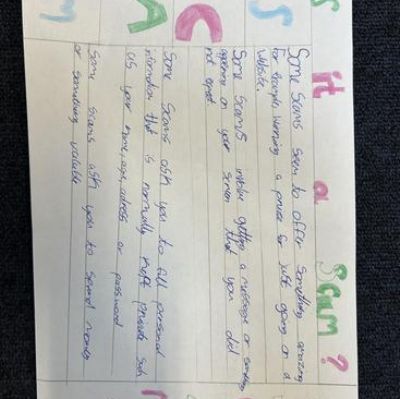 it a Scam?
S
Some Scams seem to offer Something amazing
for example, winning a for just going on a
website.
C
Some Scams involve getting a message or
on your screen that you did
not
A
Some Scams ask you to personal
information that is normally kept private such
as your name, age, adress or password
m
Some scams ask you to spend money
or something valuable